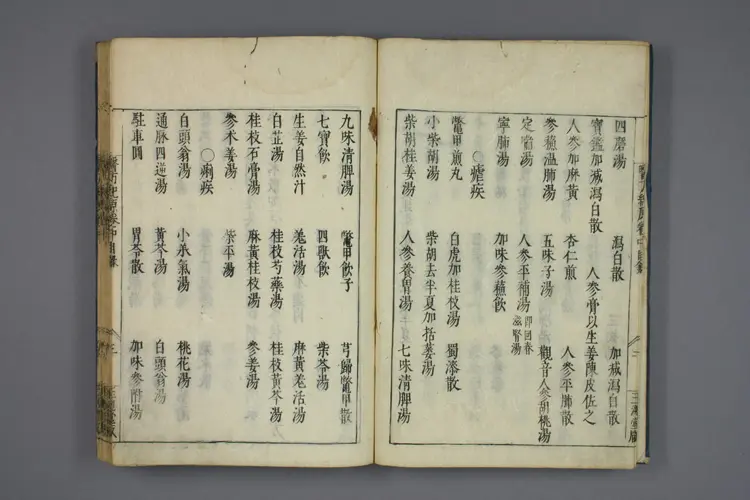 四磨湯 瀉白散 加減瀉白散
寶鑑加減瀉白散 人參膏以生姜陳皮佐之
人參加麻黃 杏仁煎 人參平肺散
參蘓溫肺湯 五味子湯 觀音人參胡桃湯
定喘湯 人參平補湯 即回春滋腎湯
寧肺湯 加味參蘓飲
○瘧疾
鱉甲煎丸 白虎加桂枝湯 蜀漆散
小柴胡湯 柴胡去半夏加括蔞湯
柴胡桂姜湯 人參養胃湯 七味清脾湯
九味清脾湯 鱉甲飲子 芎歸鱉甲散
七寶飲 四獸飲 柴苓湯
生姜自然汁 羗活湯 麻黃羗活湯
白芷湯 桂枝芍藥湯 桂枝黃芩湯
桂枝石膏湯 麻黃桂枝湯 參姜湯
參朮姜湯 柴平湯
○痢疾
白頭翁湯 小承氣湯 桃花湯
通脉四逆湯 黃芩湯 白頭翁湯
駐車圓 胃苓散 加味參附湯